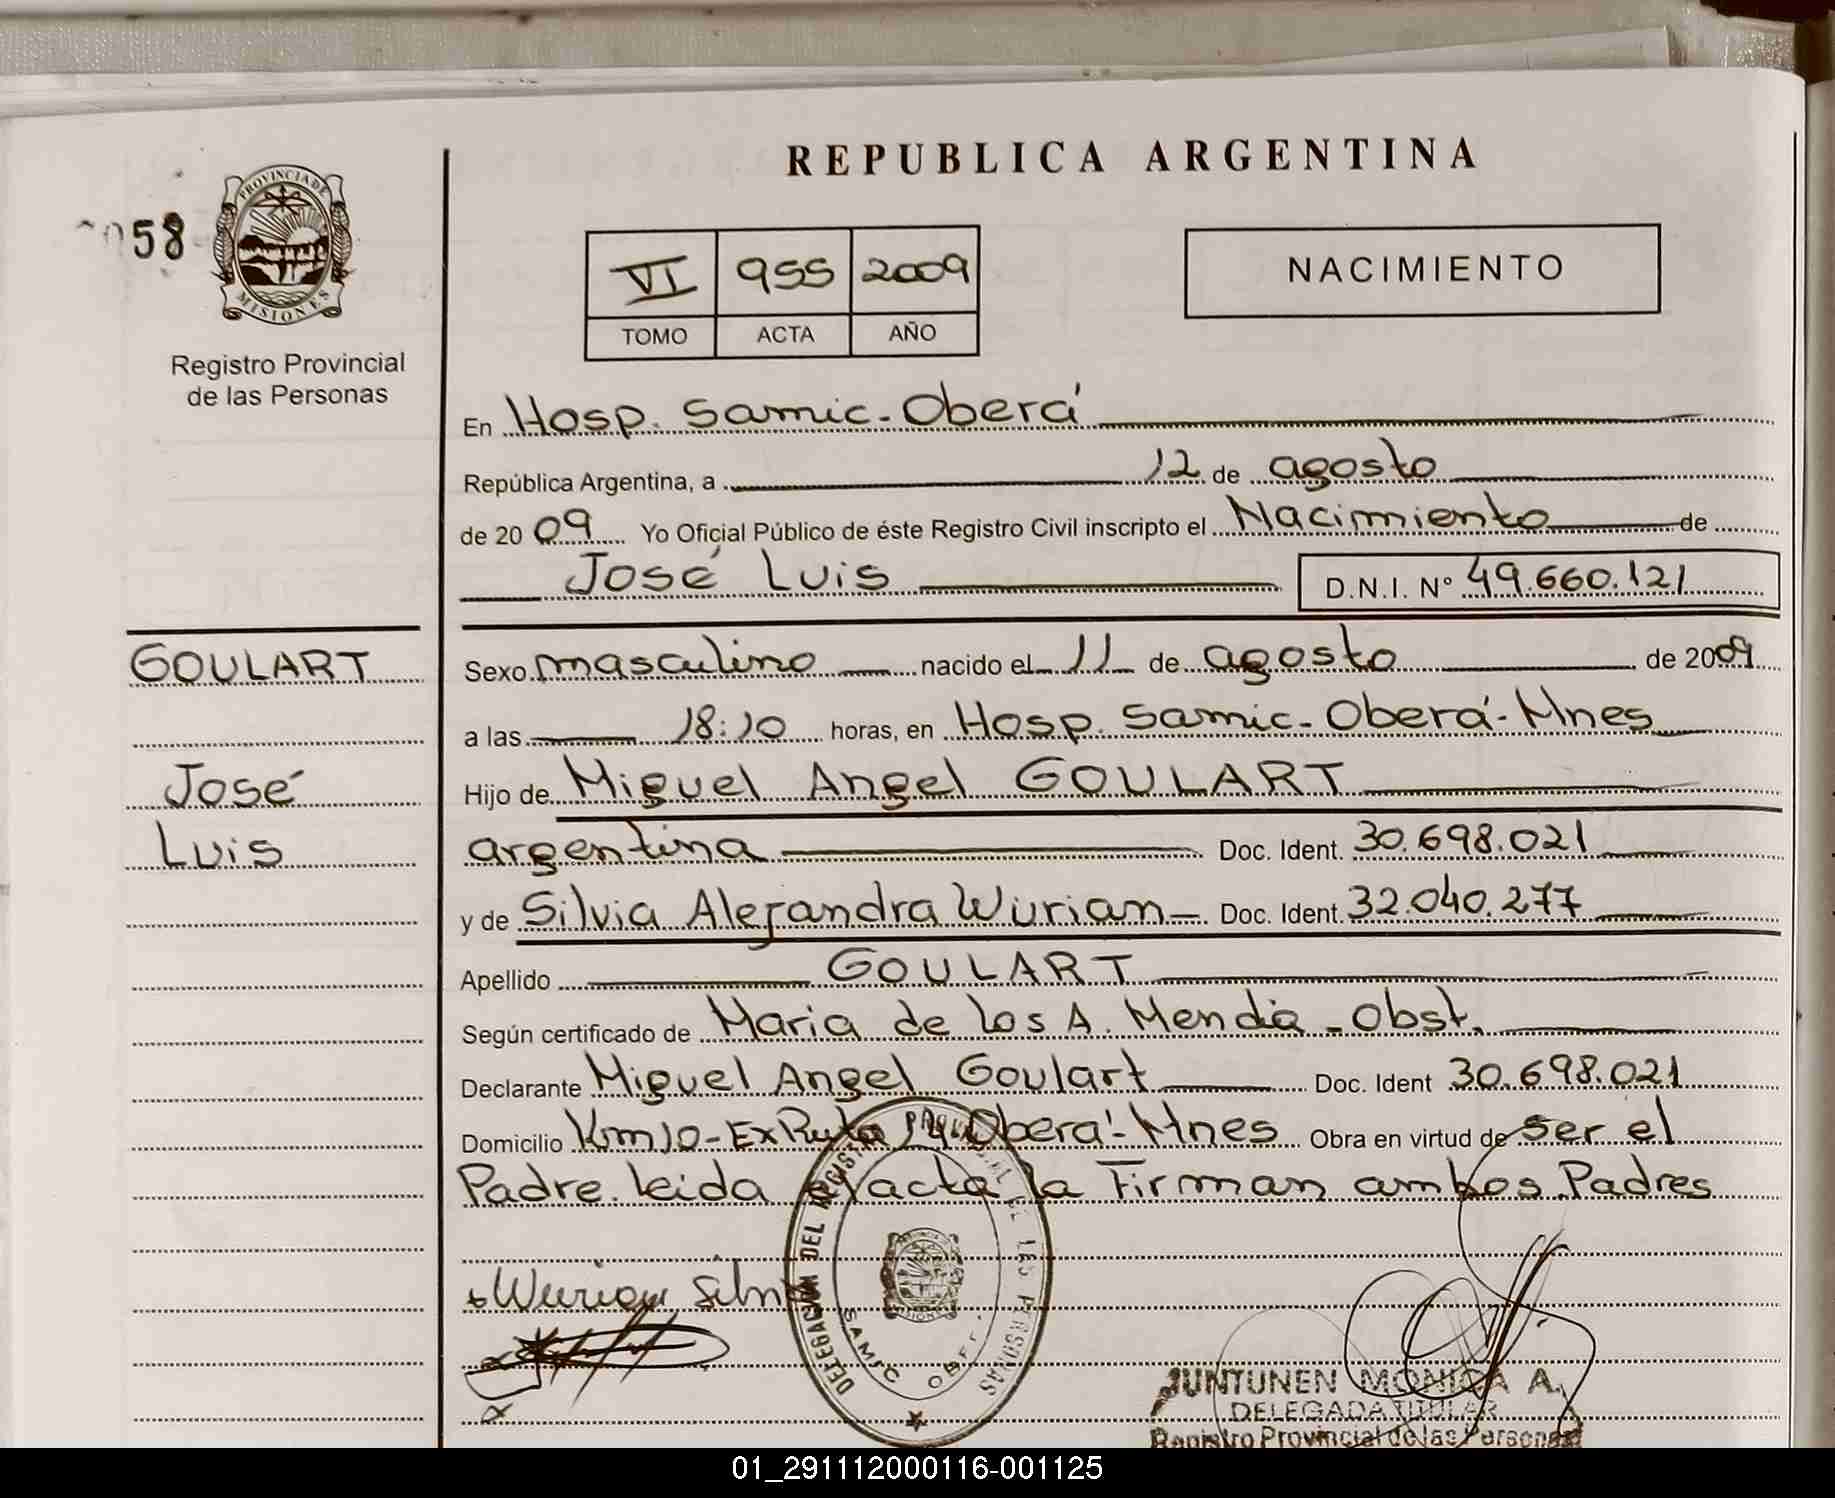 REPUBLICA ARGENTINA
058
PROVINCIA DE
MISIONES
Registro Provincial
de las Personas
VI 955 2009
TOMO ACTA AÑO
NACIMIENTO
En Hosp. Samic-Oberá
República Argentina, a 12 de agosto
de 2009 Yo Oficial Público de éste Registro Civil inscripto el Nacimiento de
José Luis D.N.I. Nº 49.660.121
GOULART
José
Luis
Sexo masculino nacido el 11 de agosto de 2009
a las 18:10 horas, en Hosp. Samic-Oberá-Mnes
Hijo de Miguel Angel GOULART
argentina Doc. Ident. 30.698.021
y de Silvia Alejandra Wurian Doc. Ident. 32.040.277
Apellido GOULART
Según certificado de Maria de los A. Mendia - Obst.
Declarante Miguel Angel Goulart Doc. Ident 30.698.021
Domicilio Km10-Ex Ruta 14-Oberá-Mnes Obra en virtud de ser el
Padre. leida el acta la Firman ambos Padres
Wurian Silvia
DELEGACION DEL REGISTRO PROVINCIAL DE LAS PERSONAS
SAMIC
JUNTUNEN MONICA A.
DELEGADA TITULAR
Registro Provincial de las Personas
01_291112000116-001125